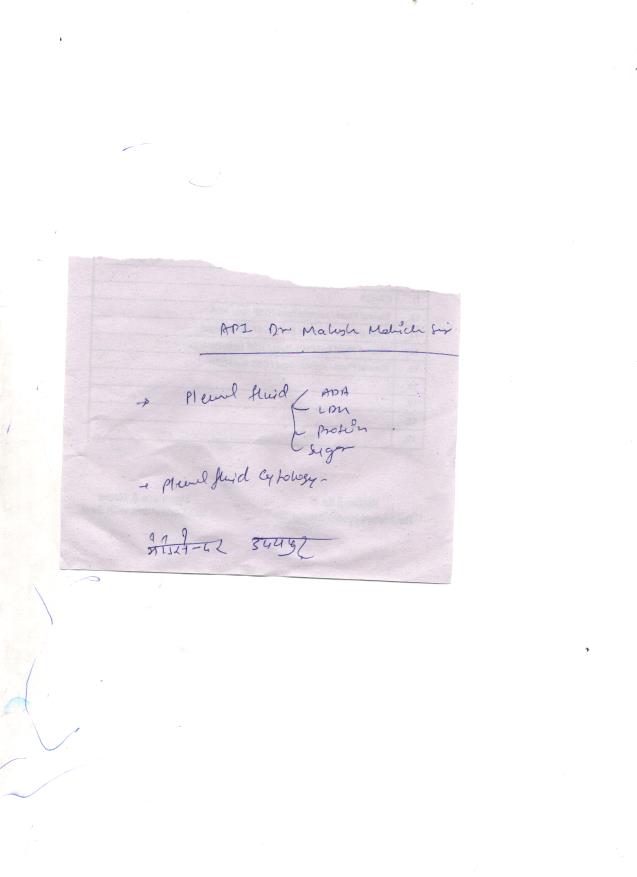 API Dr Mahesh Mahich Sir
→ Pleural fluid
ADA
LDH
Protein
Sugar
→ Pleural fluid Cytology-
उदयपुर